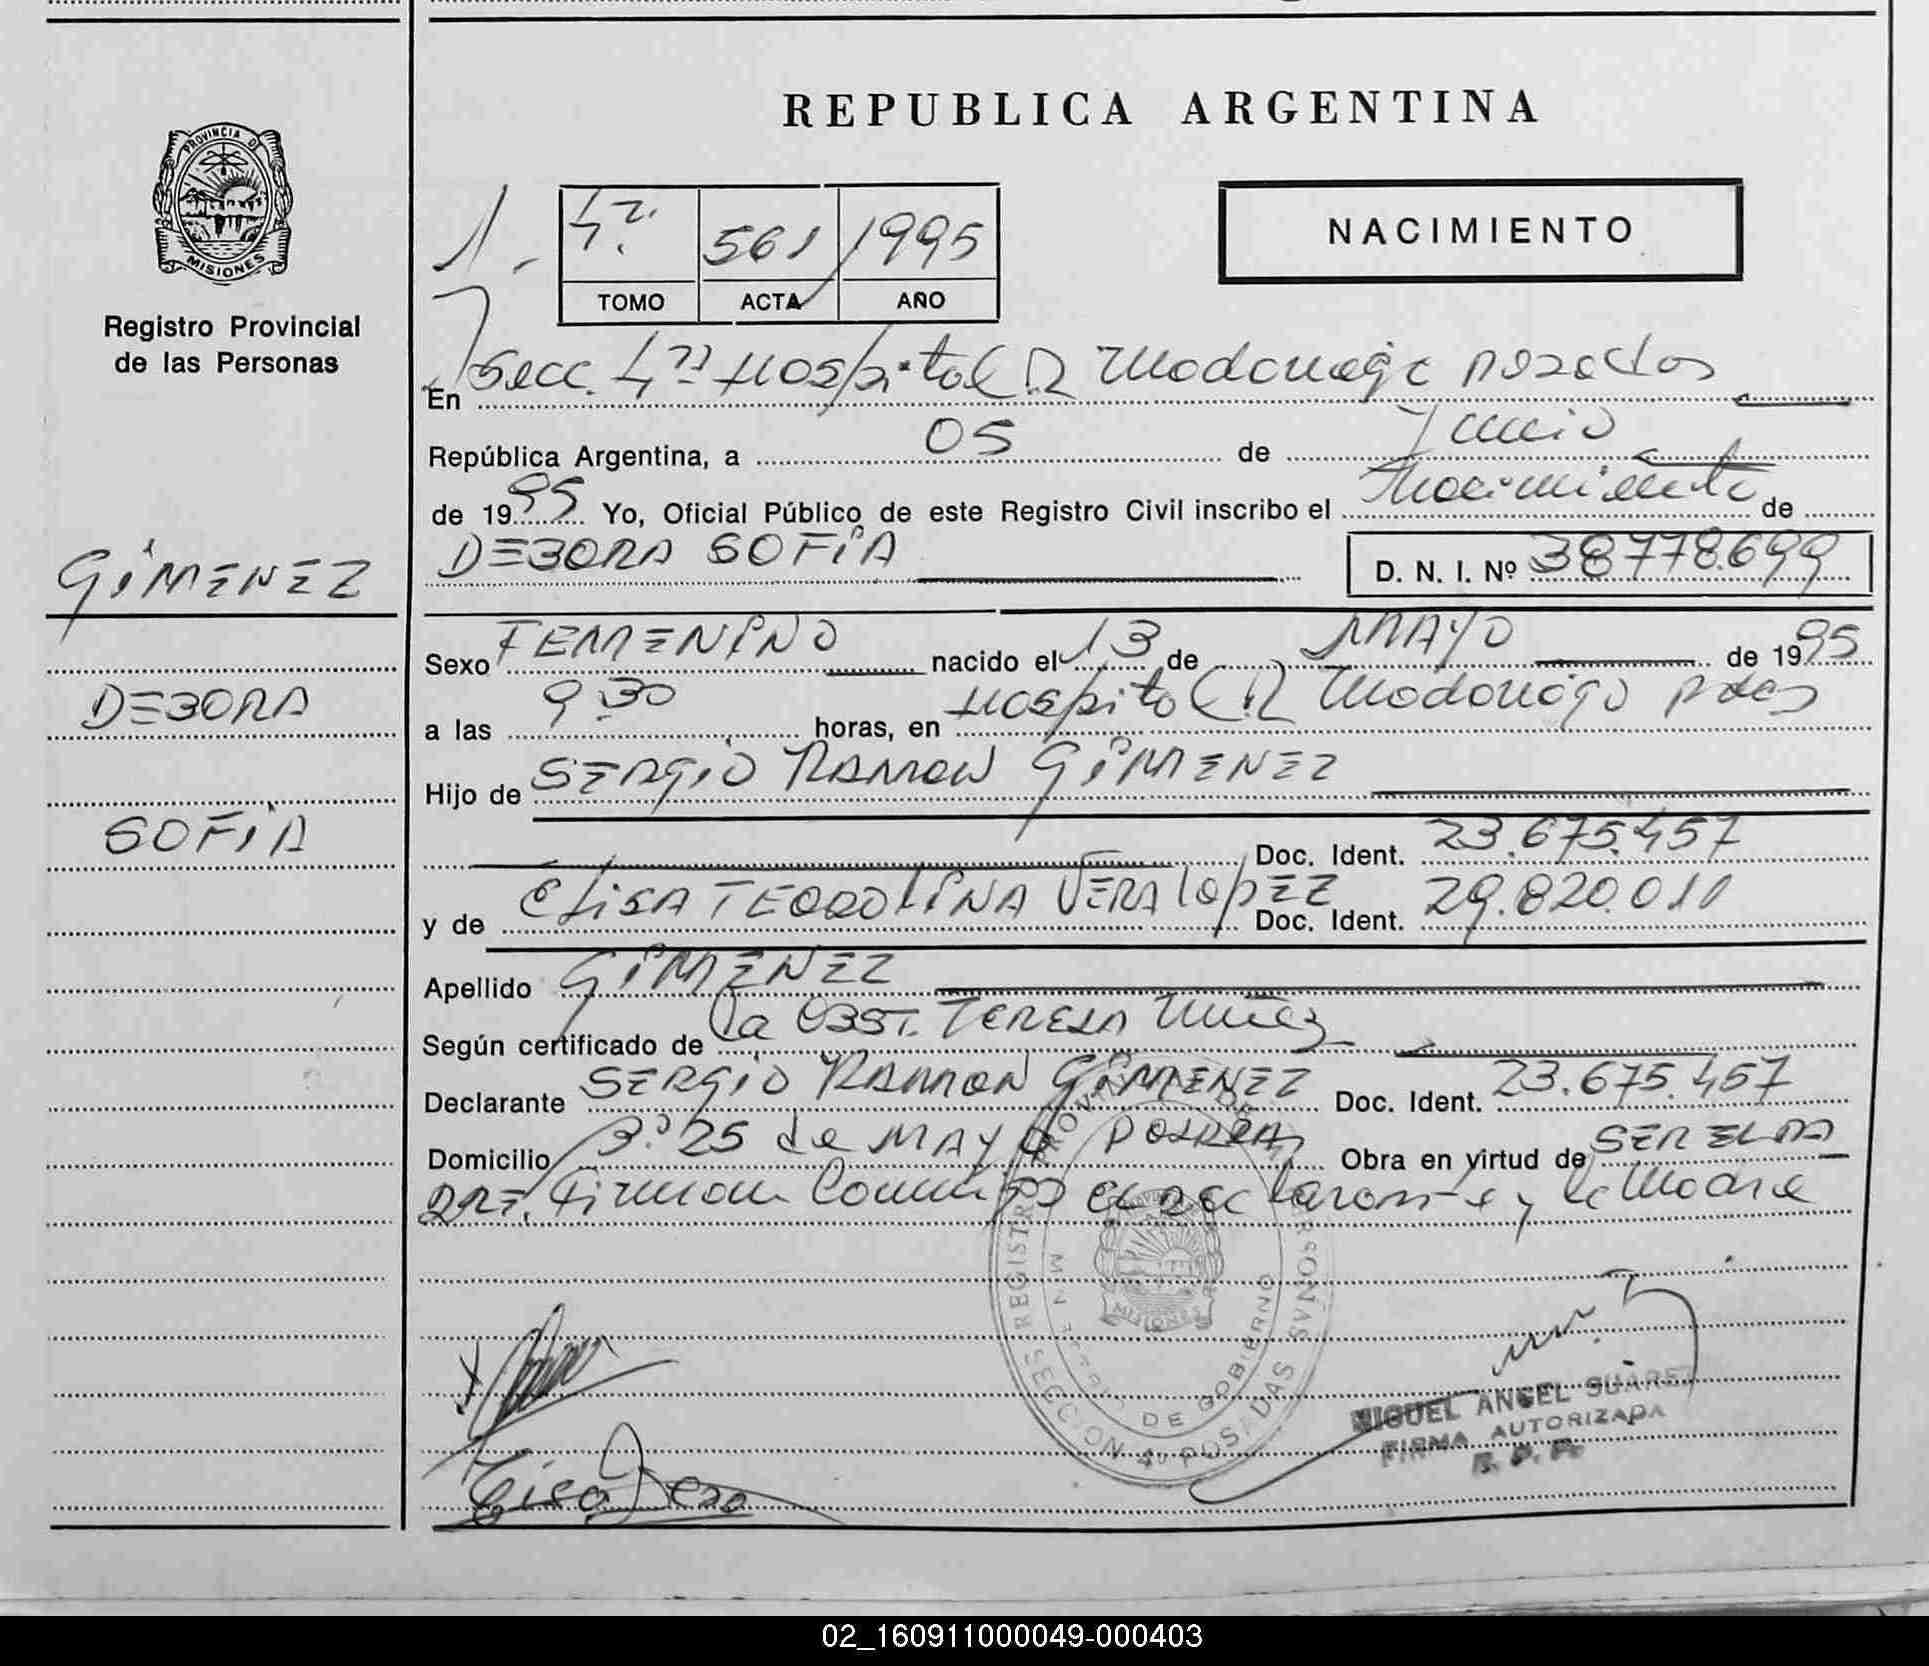 REPUBLICA ARGENTINA
PROVINCIA DE
MISIONES
Registro Provincial
de las Personas
1.
4ª.
561
1995
TOMO
ACTA
AÑO
NACIMIENTO
En Secc. 4ª Hospital R Madariaga Posadas
República Argentina, a 05 de Junio
de 1995 Yo, Oficial Público de este Registro Civil inscribo el Nacimiento de
DEBORA SOFÍA
D. N. I. Nº 38778.699
GIMENEZ
DEBORA
SOFIA
Sexo FEMENINO nacido el 13 de MAYO de 1995
a las 9 30 horas, en Hospital R Madariaga Pdas
Hijo de SERGIO RAMON GIMENEZ
Doc. Ident. 23.675.457
y de ELISA TEODOLINA VERA LOPEZ Doc. Ident. 29.820.011
Apellido GIMENEZ
Según certificado de la OBST. TERESA Muñez
Declarante SERGIO RAMON GIMENEZ Doc. Ident. 23.675.457
Domicilio Bº 25 de MAYO POSADAS Obra en virtud de SER EL PA
DRE. Firman Conmigo el declarante y la Madre
MISIONES
DE GOBIERNO
SECCION 4ª POSADAS
Elisa Vera
MIGUEL ANGEL SUAREZ
FIRMA AUTORIZADA
R. P. P.
02_160911000049-000403